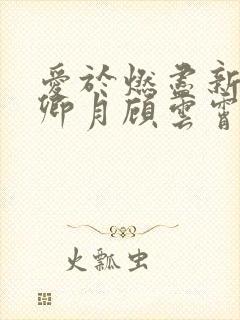 愛於燃盡新
卿月顧雲霄
火瓢虫